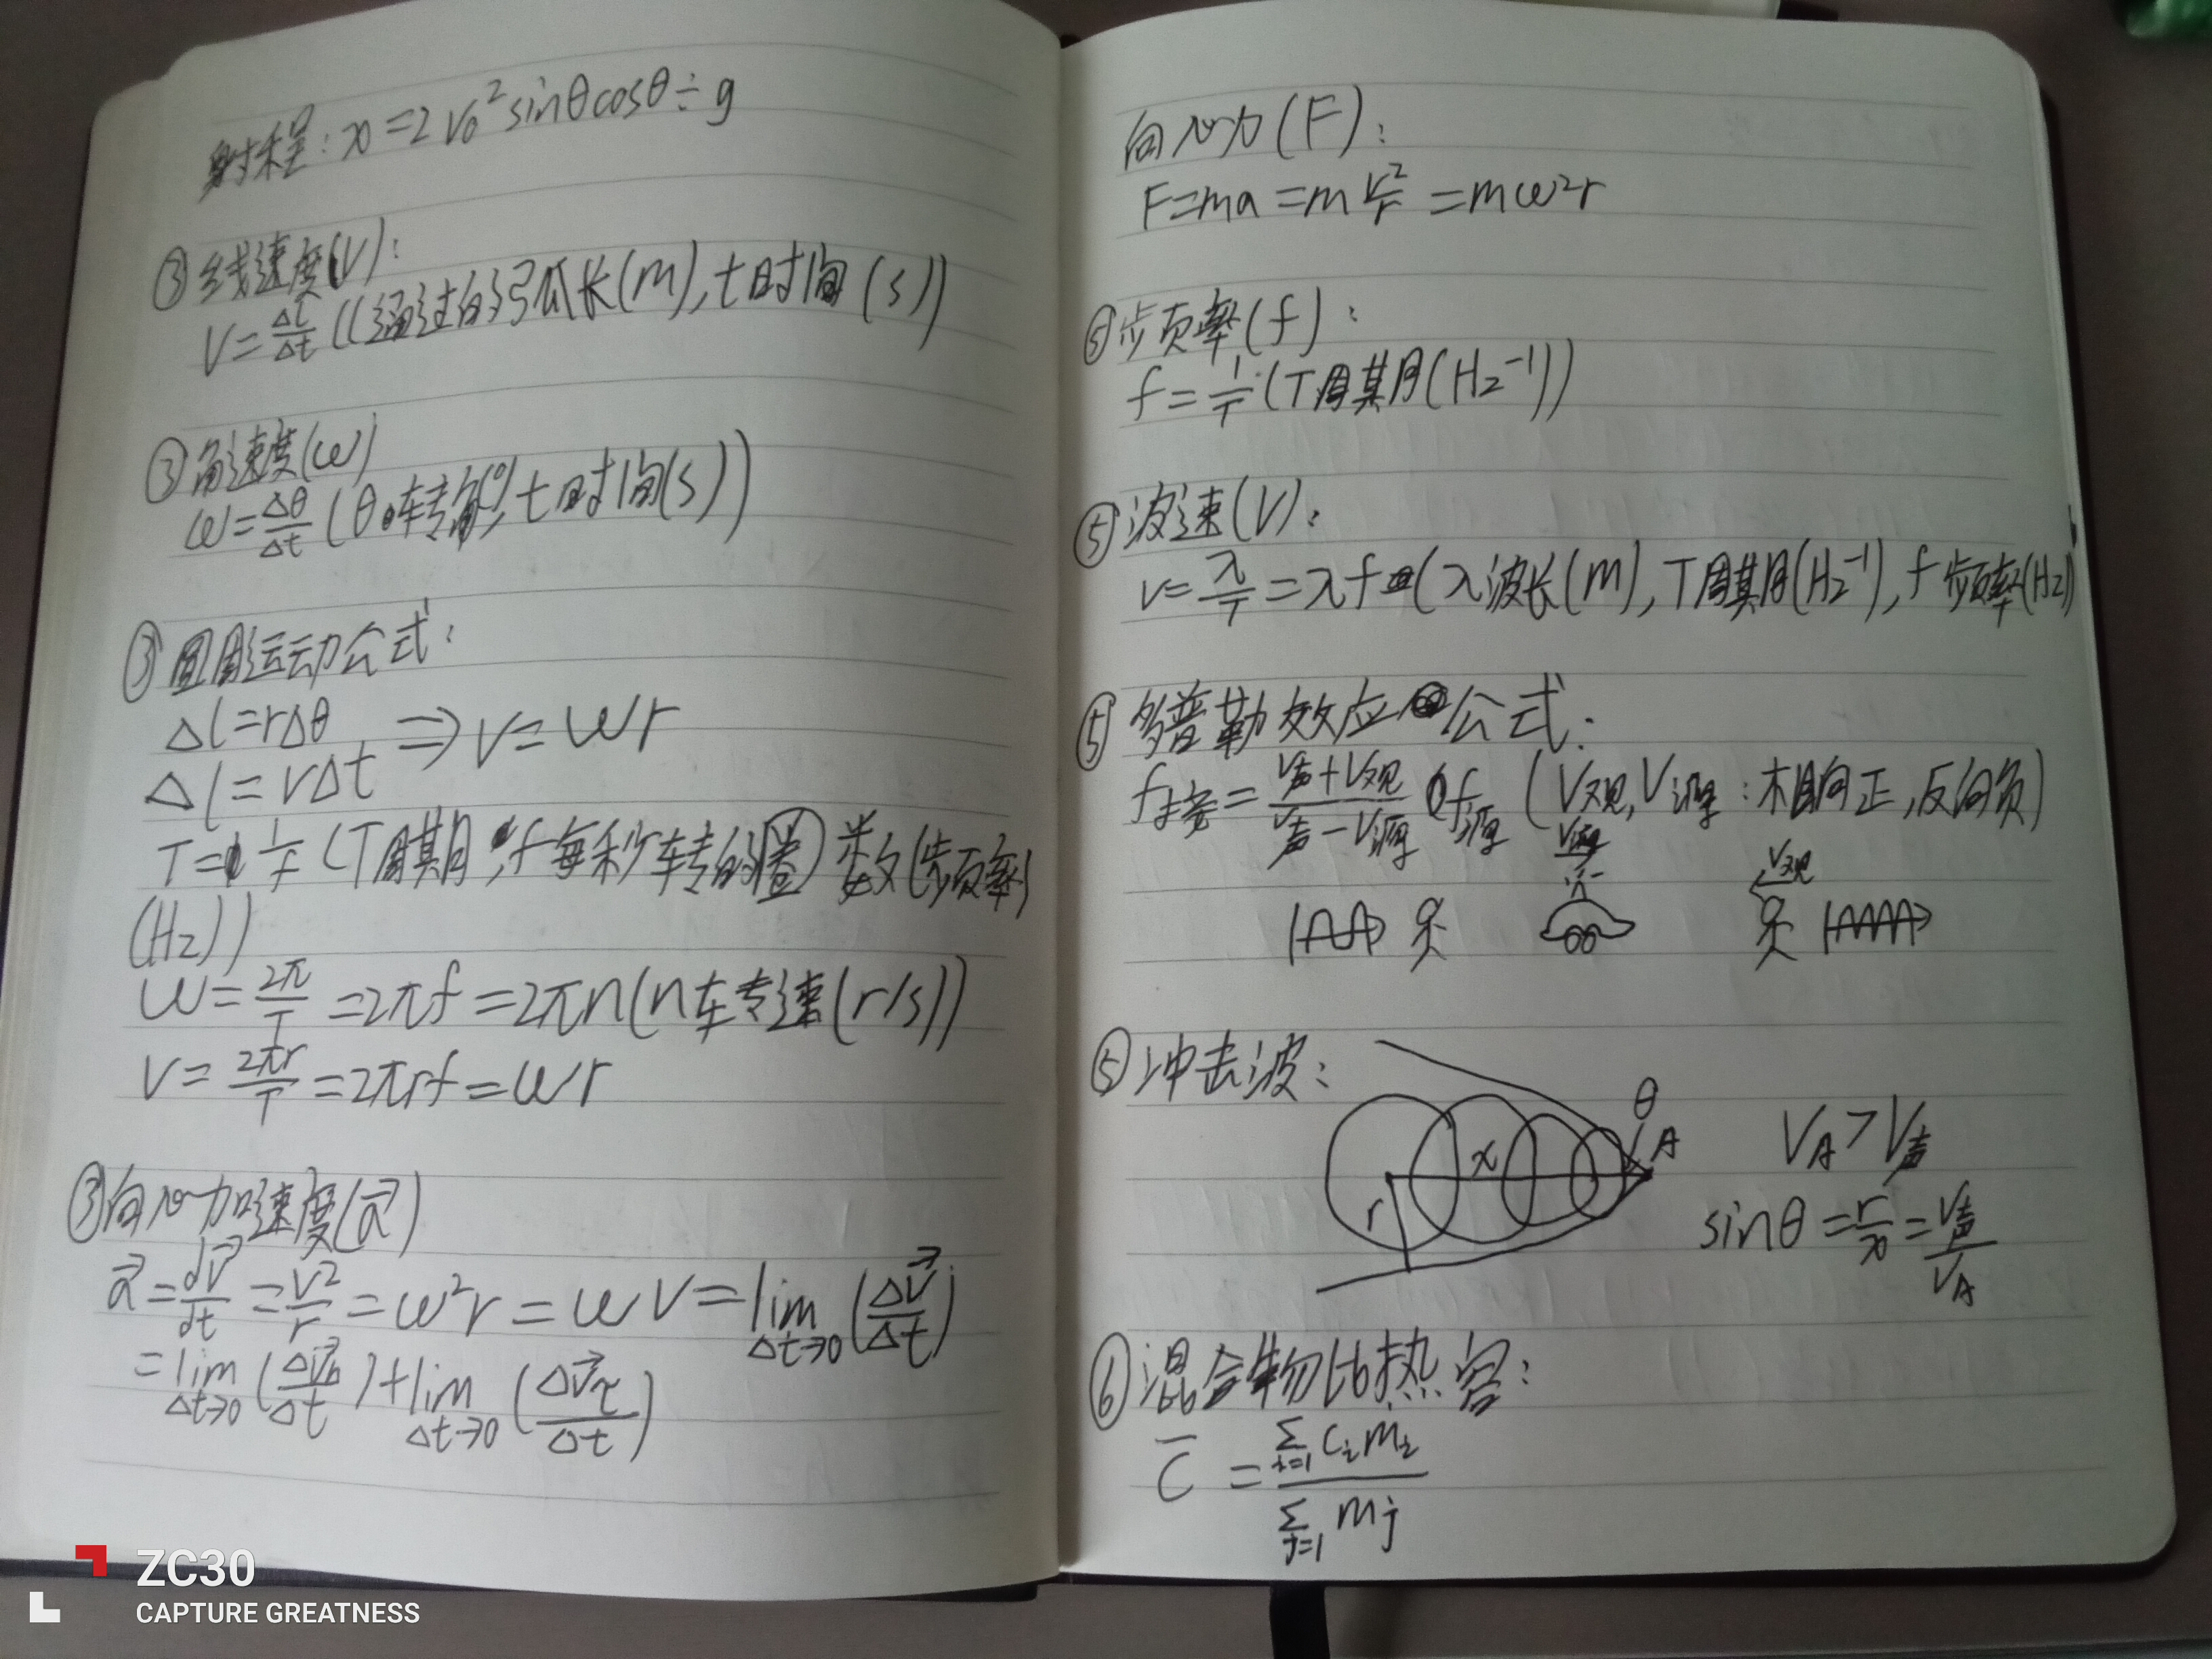 射程：x=2v₀²sinθcosθ÷g
③线速度(v)：
v=Δl/Δt (l通过的弧长(m), t时间(s))
③角速度(ω)
ω=Δθ/Δt (θ转角(°), t时间(s))
③圆周运动公式：
Δl=rΔθ
Δl=vΔt ⇒ v=ωr
T=1/f (T周期, f每秒转的圈数(频率)
(Hz))
ω=2π/T=2πf=2πn(n转速(r/s))
v=2πr/T=2πrf=ωr
③向心加速度(a⃗)
a⃗=dv⃗/dt=v²/r=ω²r=ωv=lim Δt→0 (Δv⃗/Δt)
=lim Δt→0 (Δv⃗n/Δt)+lim Δt→0 (Δv⃗τ/Δt)
向心力(F)：
F=ma=m v²/r=mω²r
⑤频率(f)：
f=1/T (T周期(Hz⁻¹))
⑤波速(V)：
v=λ/T=λf (λ波长(m), T周期(Hz⁻¹), f频率(Hz))
⑤多普勒效应公式：
f接=(V声+V观)/(V声-V源) f源 (V观, V源：相向正, 反向负)
V源
V观
⑤冲击波：
θ
A
x
r
VA>V声
sinθ=r/x=V声/VA
⑥混合物比热容：
C̅=Σi=1 cᵢmᵢ / Σj=1 mj
ZC30
CAPTURE GREATNESS